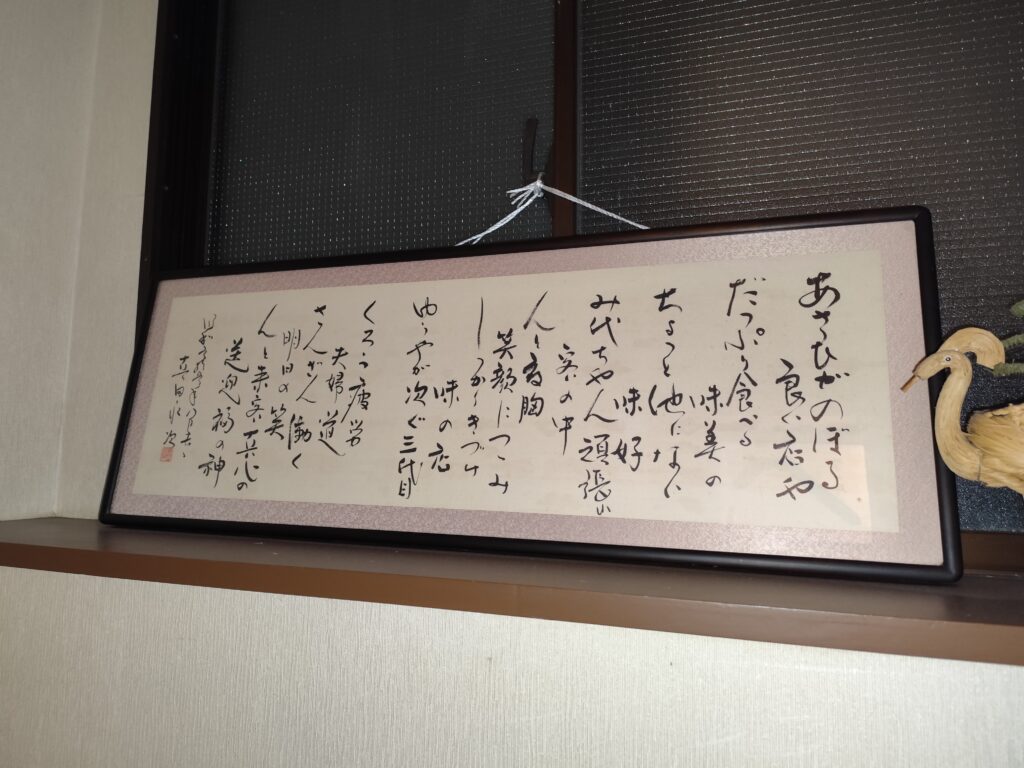 あさひがのぼる
良い店や
だっぷり食べる
味美の
ちょっと他にない
味好
み代ちゃん頑張い
客の中
んと度胸
笑顔につゝみ
しっかりきづけ
味の店
ゆうやが次ぐ三代目
くろう疲労
夫婦道
さんざん働く
明日の笑
んと来客一員心の
送迎福の神